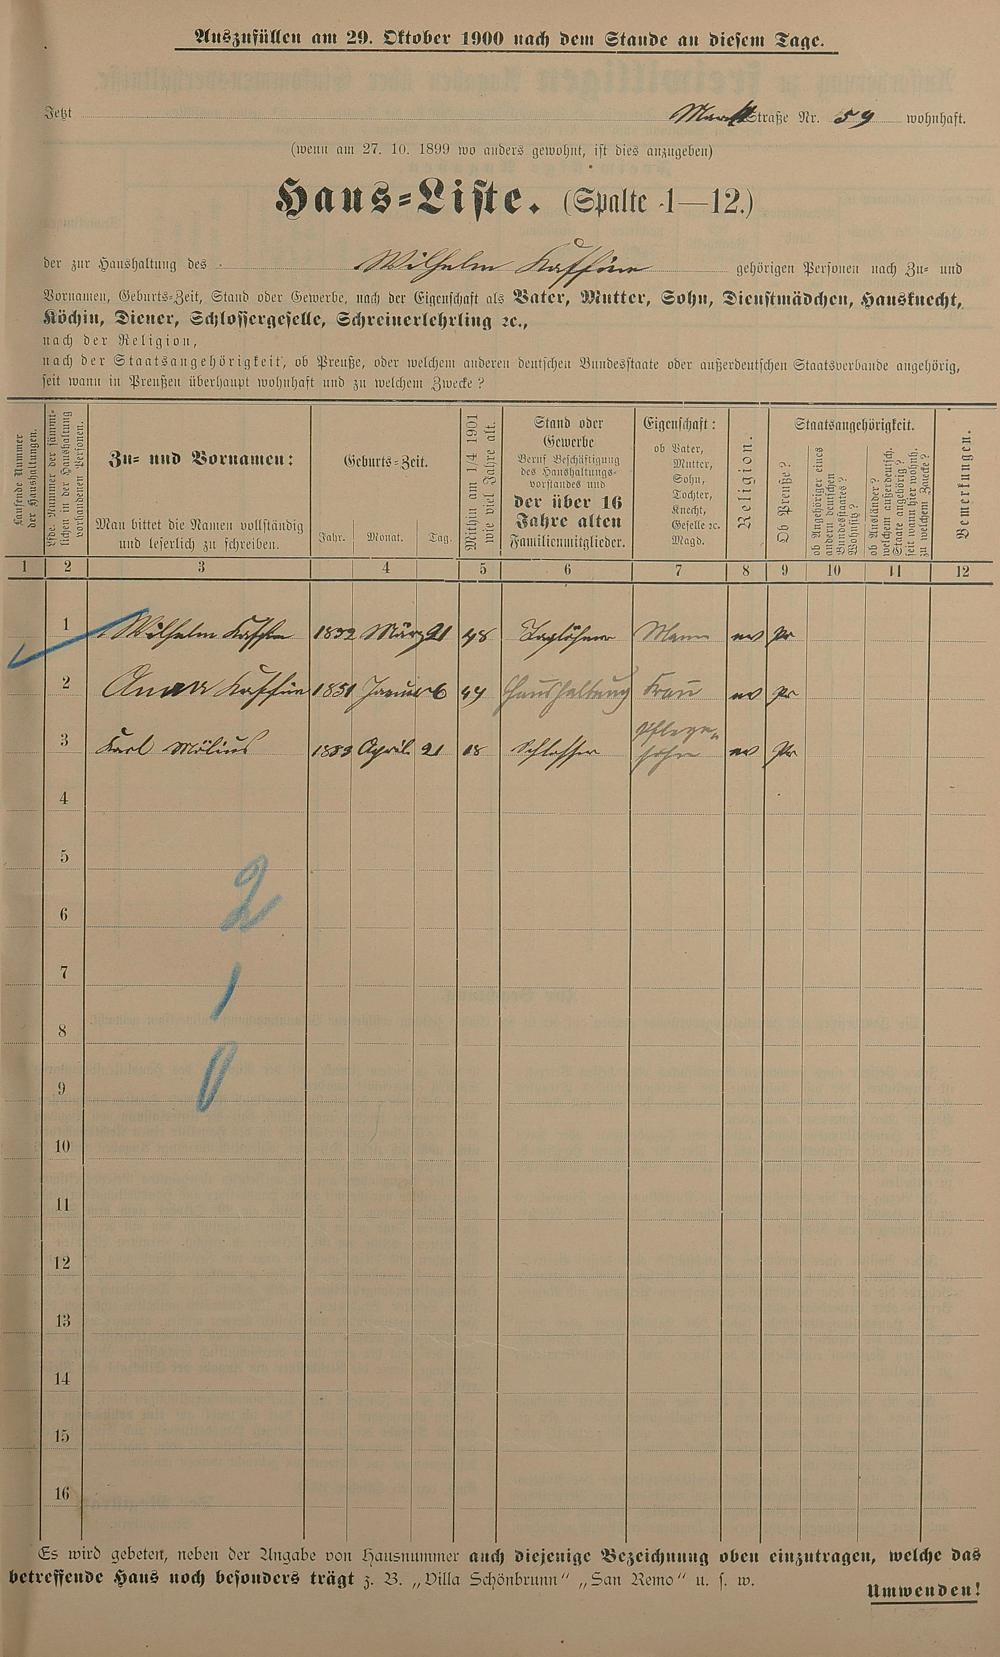 Auszufüllen am 29. Oktober 1900 nach dem Stande an diesem Tage.
Jetzt Straße Nr. 59 wohnhaft.
(wenn am 27. 10. 1899 wo anders gewohnt, ist dies anzugeben)
Haus-Liste. (Spalte 1—12.)
der zur Haushaltung des Wilhelm Kaffine gehörigen Personen nach Zu- und
Vornamen, Geburts-Zeit, Stand oder Gewerbe, nach der Eigenschaft als Vater, Mutter, Sohn, Dienstmädchen, Hausknecht,
Köchin, Diener, Schlossergeselle, Schreinerlehrling ꝛc.,
nach der Religion,
nach der Staatsangehörigkeit, ob Preuße, oder welchem anderen deutschen Bundesstaate oder außerdeutschen Staatsverbande angehörig,
seit wann in Preußen überhaupt wohnhaft und zu welchem Zwecke?
Laufende Nummer
der Haushaltungen.
Lfde. Nummer der sämmt-
lichen in der Haushaltung
vorhandenen Personen.
Zu- und Vornamen:
Man bittet die Namen vollständig
und leserlich zu schreiben.
Geburts-Zeit.
Jahr. Monat. Tag.
Mithin am 1/4 1901
wie viel Jahre alt.
Stand oder
Gewerbe
Beruf Beschäftigung
des Haushaltungs-
vorstandes und
der über 16
Jahre alten
Familienmitglieder.
Eigenschaft:
ob Vater,
Mutter,
Sohn,
Tochter,
Knecht,
Geselle ꝛc.
Magd.
Religion.
Staatsangehörigkeit.
Ob Preuße?
ob Angehöriger eines
andern deutschen
Bundesstaates?
Wohnsitz?
ob Ausländer?
welchem außerdeutsch.
Staate angehörig?
seit wann hier wohnh.
zu welchem Zwecke?
Bemerkungen.
1 2 3 4 5 6 7 8 9 10 11 12
1 Wilhelm Kaffine März 21 48 Taglöhner Mann ev Pr
2 Anna Kaffine 1851 Januar 6 Haushaltung Frau ev Pr
3 Karl Mölius April 21 18 Schlosser Pflege-
sohn ev Pr
4
5
2
6
7
1
8
0
9
10
11
12
13
14
15
16
Es wird gebeten, neben der Angabe von Hausnummer auch diejenige Bezeichnung oben einzutragen, welche das
betreffende Haus noch besonders trägt z. B. „Villa Schönbrunn" „San Remo" u. s. w.
Umwenden!